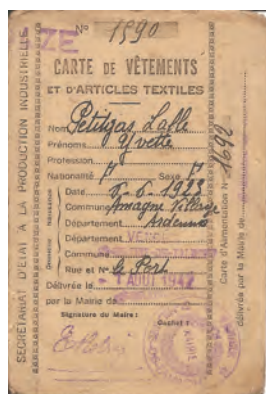 ZE
Nº 1590
CARTE DE VÊTEMENTS
ET D'ARTICLES TEXTILES
Nom Petitgas Lalle
Prénoms Yvette
Profession
Nationalité F Sexe F
Date 8-6-1923
Commune Amagne Village
Département Ardennes
Département
Commune
Rue et Nº le Port
Délivrée le 1 AOUT 1942
par la Mairie de
Signature du Maire :
Cachet :
SECRÉTARIAT D'ETAT A LA PRODUCTION INDUSTRIELLE
Naissance
Domicile
Carte d'Alimentation Nº 1692
délivrée par la Mairie de
MAIRIE